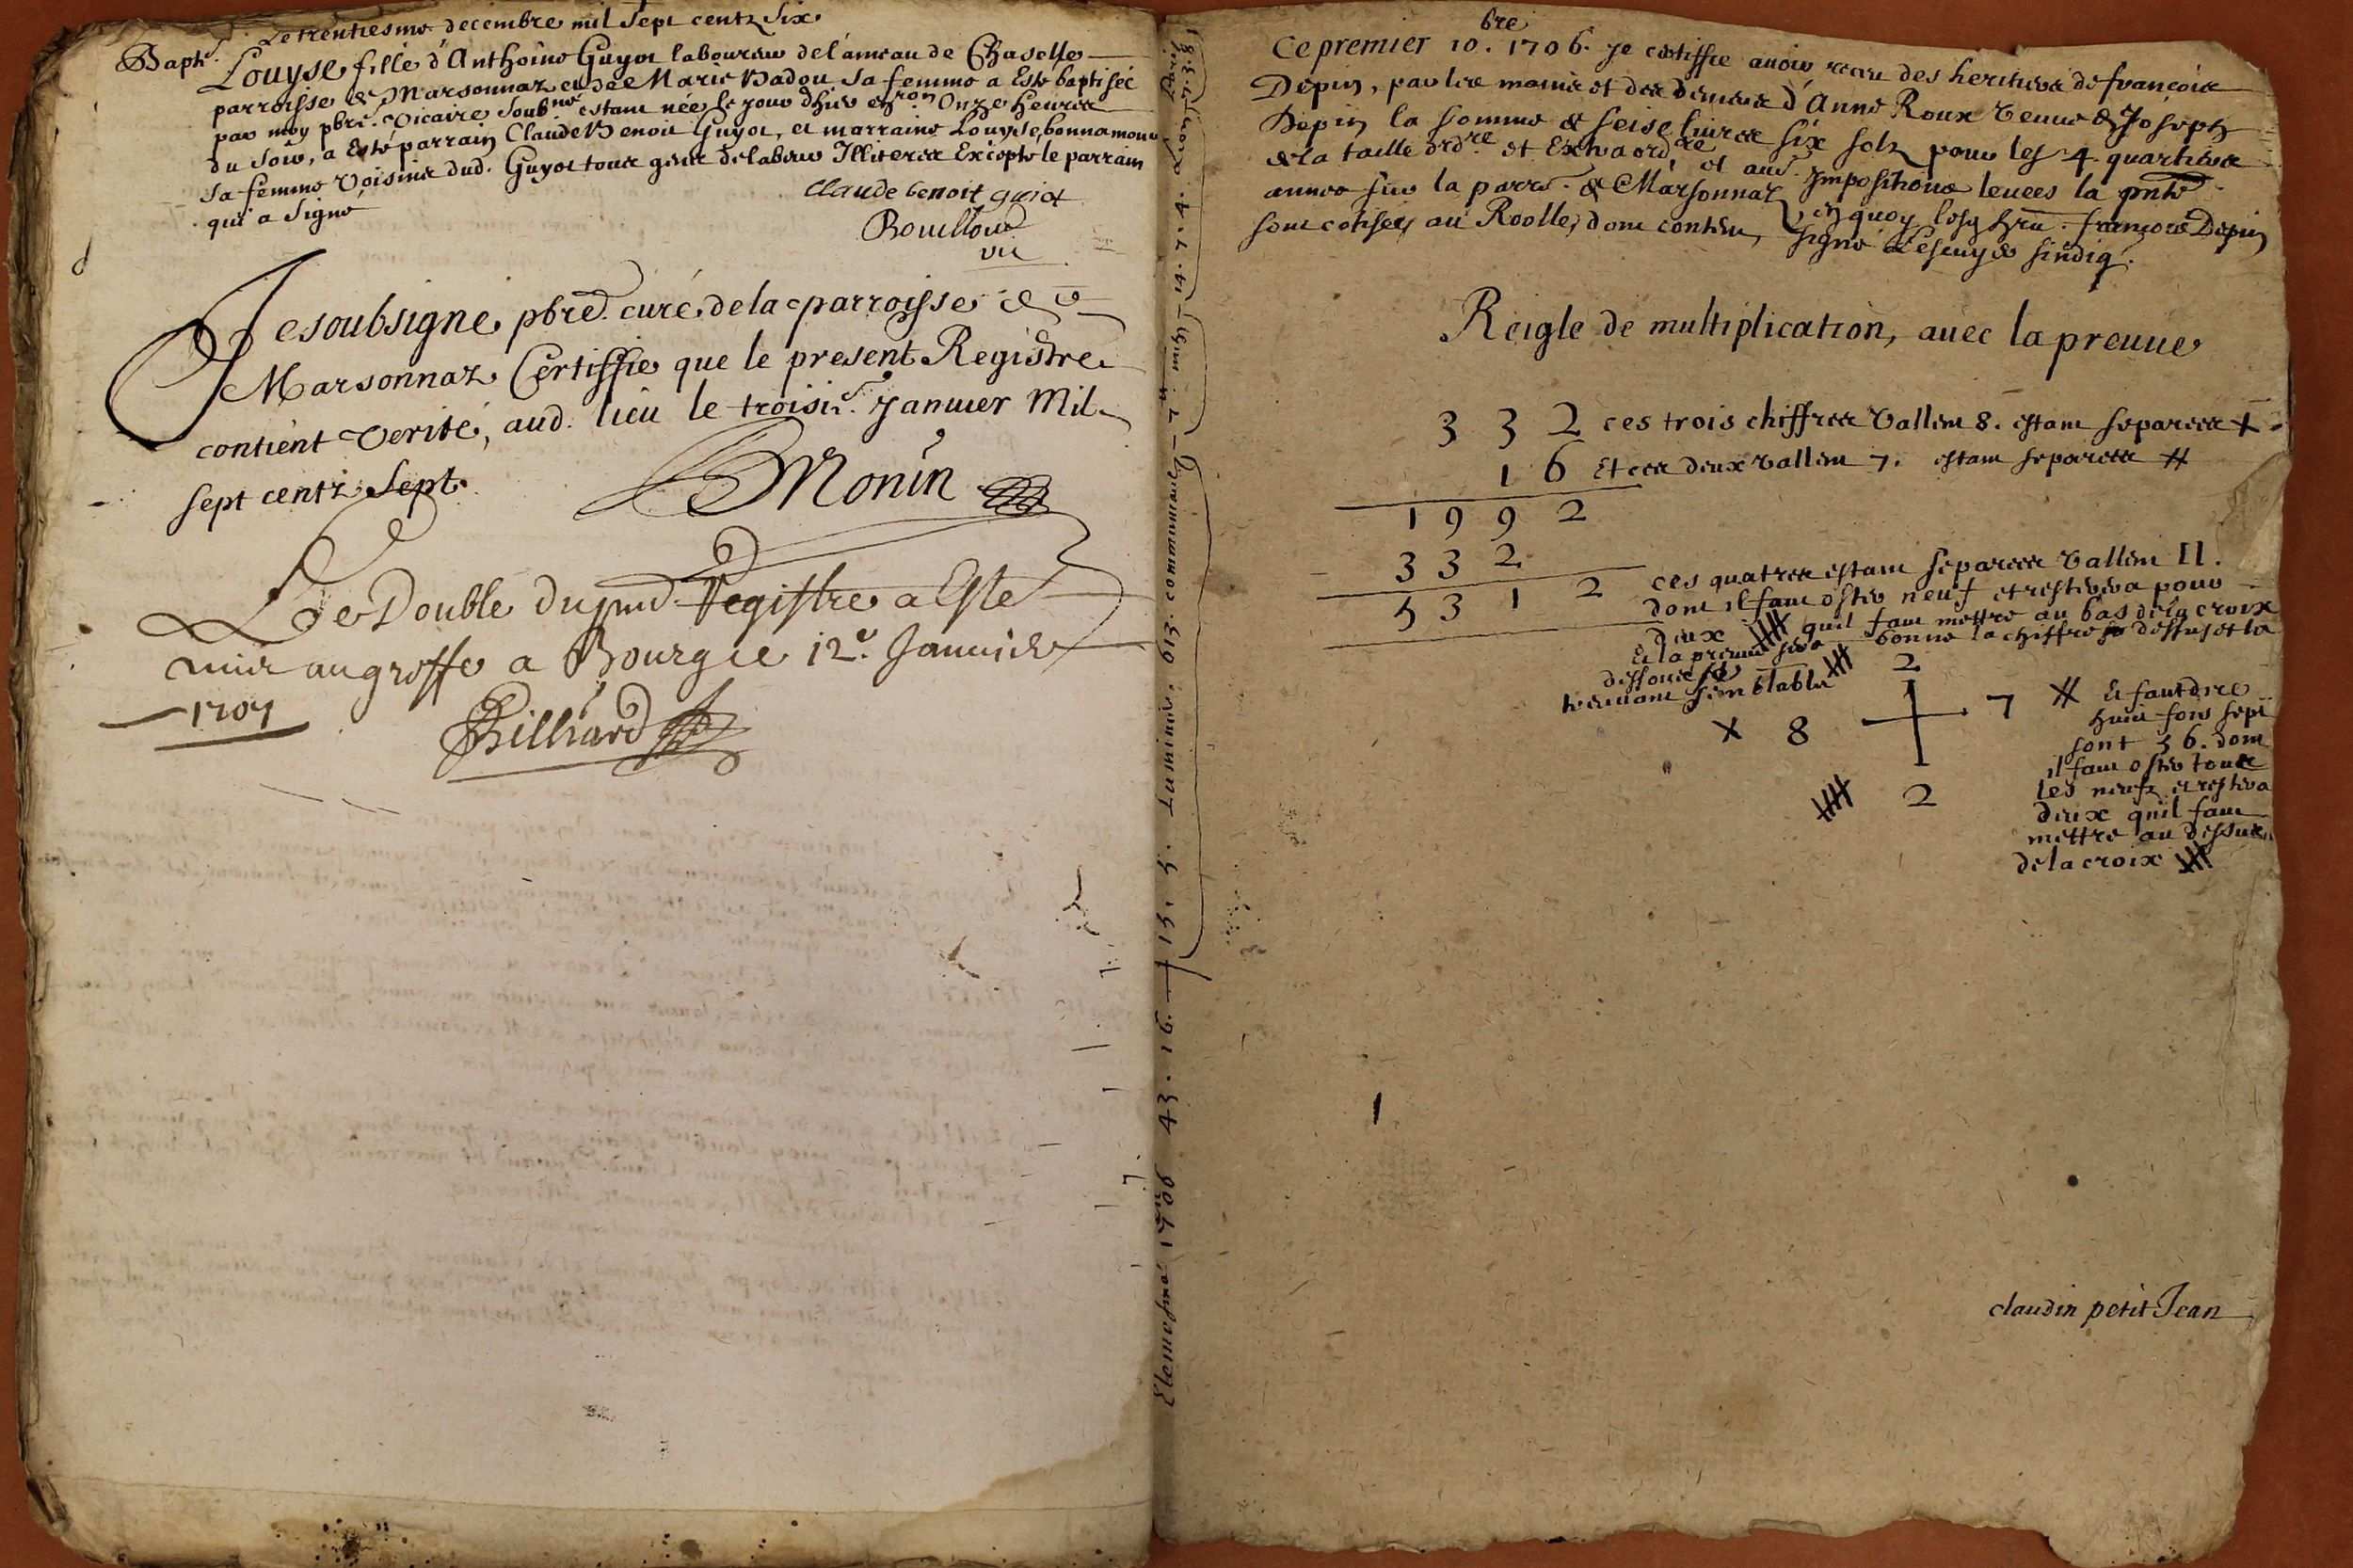 Le trentiesme decembre mil Sept centz Six
Bapt.
Louyse fille d'Anthoine Guyot laboureur de l'ameau de Chaselle
parroisse de Marsonnaz et de Marie Badou Sa femme a Esté baptiseé
par moy pbre. Vicaire Soubné estant neé le jour d'hier environ Onze heures
du Soir, a Esté parrain Claude Benoit Guyot, et marraine Louyse bonnamour
Sa femme Voisins dud. Guyot tous gens de labeur Illiteres Excepté le parrain
qui a Signé
Claude benoit guiot
Bouilloud
vic
Je soubsigné pbre. curé de la parroisse de
Marsonnaz Certiffie que le present Registre
contient verité, aud. lieu le troisie. Janvier Mil
sept centz Sept.
Monin
Le Double du pnt. Registre a Esté
mis au greffe a Bourg ce 12e. Janvier
1707
Billiard
Ce premier 10.bre 1706. Je certiffie avoir receu des heritiers de françois
Depin, par les mains et des deniers d'Anne Roux veuve de Joseph
Depin la somme de seise livres six solz pour les 4. quartiers
de la taille ordre. et Extraordre. et aud. Impositions levees la pnte
annee sur la parre. de Marsonnaz en quoy lesd. hers. françois Depin
sont cotisés au Roolle, dont content, signé sindiq.
Reigle de multiplication, avec la preuve
3 3 2 ces trois chiffres vallent 8. estant separees X
1 6 Et ces deux vallent 7. estant separees #
1 9 9 2
3 3 2
5 3 1 2 ces quatres estant separees vallent 11.
dont il faut oster neuf et restera pour
deux quil faut mettre au bas de la croix
Et la preuve sera bonne la chiffre dessus et la
dessous se
trouvant semblable
2
X 8 7 # Et faut dire
huit fois sept
sont 56. dont
il faut oster tous
2 les neufz et restera
deux quil faut
mettre au dessus
de la croix
claudin petit Jean
1706 43. 16. 15. 5. Luminair. 613.